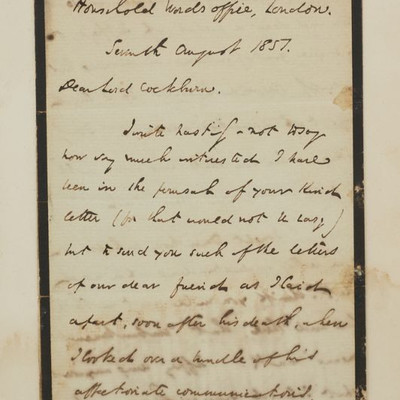 Household Words office, London.
Seventh August 1851.
Dear Lord Cockburn.
I write hastily - not to say
how very much interested I have
been in the perusal of your kind
letter (for that would not be easy)
but to send you such of the letters
of our dear friend as I laid
apart, soon after his death, when
I looked over a bundle of his
affectionate communications.